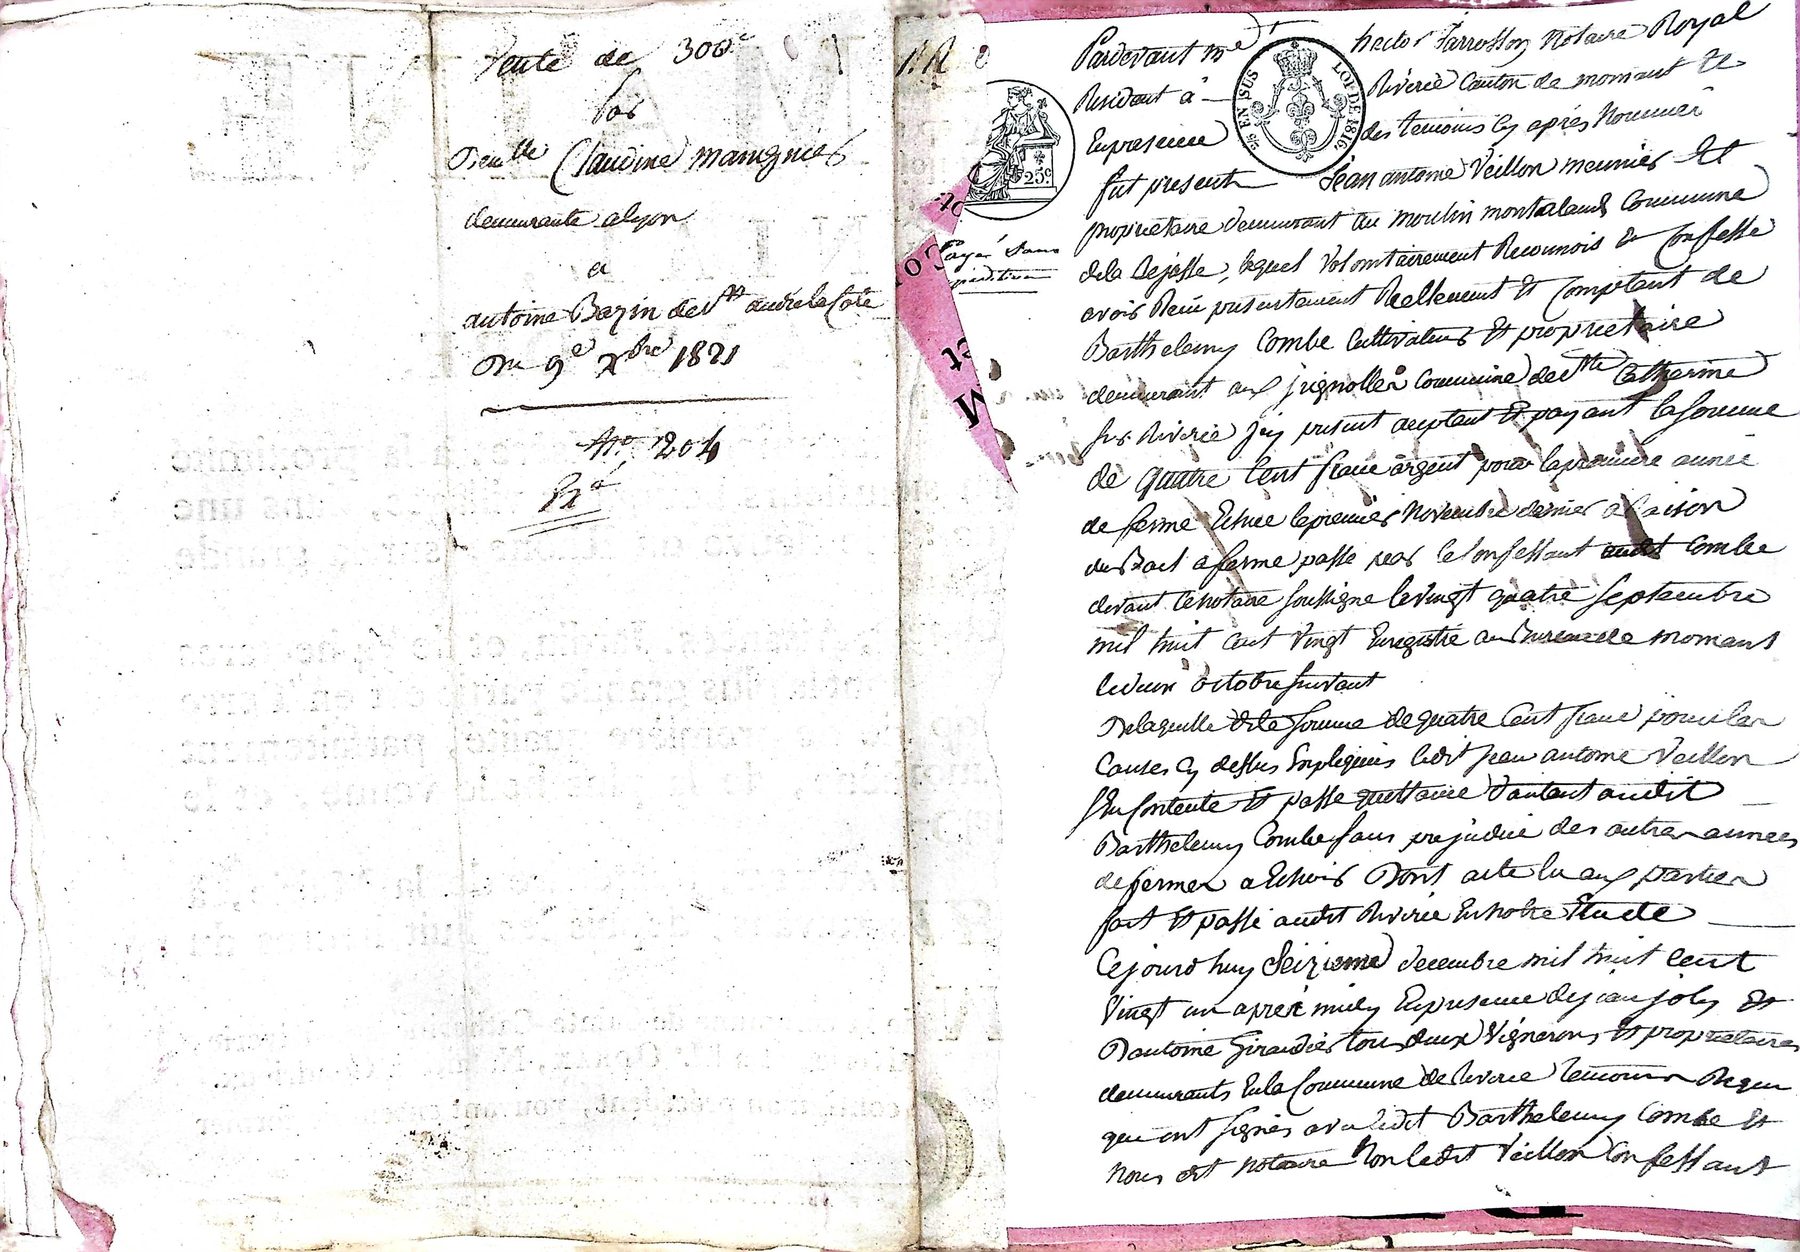 Vente de 300c
par
Demlle Claudine Marignier
demeurante a lyon
a
antoine Bazin de St andré la Côte
Du 9e Xbre 1821
No 204
Payé sans
expédition
Pardevant me hector farrosson Notaire Royal
Residant à Riverie Canton de mornant Et
En presence des temoins Cy aprés Nommés
fut present Jean antoine Veillon meunier Et
proprietaire demeurant au moulin montaland Commune
de la Rejasse, lequel volontairement Reconnois Et Confesse
avoir Reçu presentement Reellement Et Comptant de
Barthelemy Combe Cultivateur Et proprietaire
demeurant aux jugnoller Commune de Ste Catherine
sur Riverie Jcy present acceptant Et payant la somme
de quatre Cent franc argent pour la premiere année
de ferme Echue le premier Novembre dernier a Raison
du Bail a ferme passé par le Confessant audt Combe
devant le Notaire soussigné le vingt quatre septembre
mil huit cent vingt Enregistré au Bureau de mornant
le deux octobre suivant
De laquelle dte somme de quatre Cent franc pour les
Causes Cy dessus Expliquées ledit Jean antoine Veillon
sen Contente Et passe quittance d'autant audit
Barthelemy Combe sans prejudice des autres années
de fermes a Echoir Dont acte lu aux parties
fait Et passé audit Riverie En notre Etude
Cejourd huy Seizieme decembre mil huit Cent
Vingt un après midy En presence de jean joly Et
D'antoine Giraudier tous deux Vignerons Et proprietaires
demeurants En la Commune de Riverie temoins Requis
qui ont signés avec ledit Barthelemy Combe Et
Nous dit Notaire Non ledit Veillon Confessant
25c
25 EN SUS
LOI DE 1816.